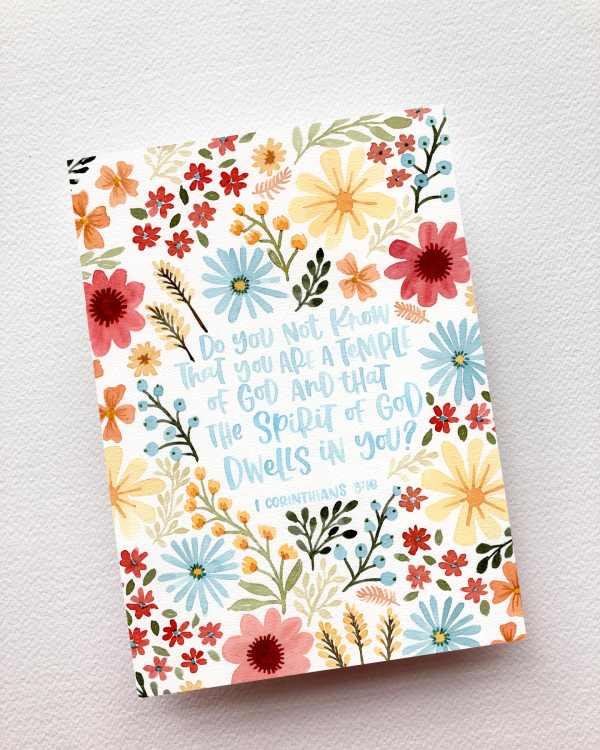 Do you Not Know
That you ARE A TEMPLE
of GoD AND tHAt
tHE SPiRiT of GoD
DwELLS iN you?
1 CORINTHIANS 3:16